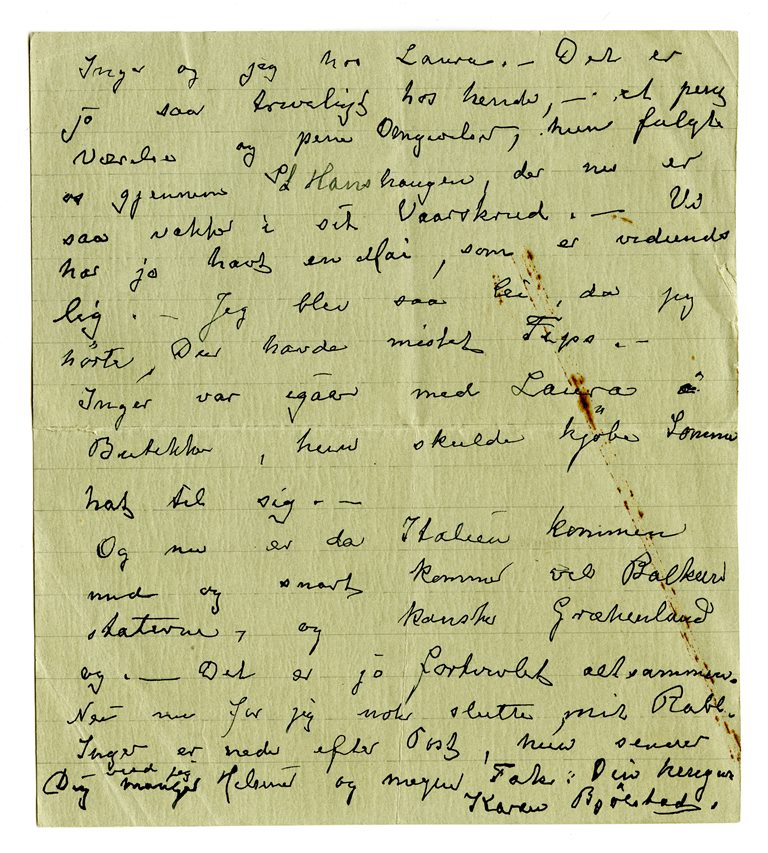 Inger og jeg hos Laura. – Det er
jo saa triveligt hos hende, – et pent
Værelse og pene Omgivelser, hun fulgte
os gjennem St Hanshaugen, der nu er
saa vakker i sit Vaarskrud. – Vi
har jo havt en Mai, som er vidunder
lig. – Jeg blev saa lei, da jeg
hörte, Du havde mistet Tips. –
Inger var igaar med Laura i
Butikker, hun skulde kjöbe Sommer
hat til sig. –
Og nu er da Italien kommen
med og snart kommer vel Balkan
staterne, og kanske Grækenland
og. – Det er jo fortvilet altsammen.
Nei nu faar jeg nok slutte mit Rabl.
Inger er nede efter Post, hun sender
Dig ved jeg mange Hilsner og megen Tak. Din hengivne
Karen Bjölstad.